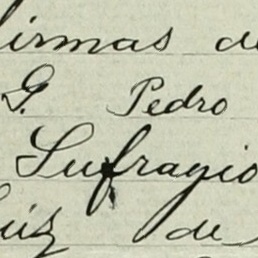 firmas de
G. Pedro
Sufragio
Luiz de